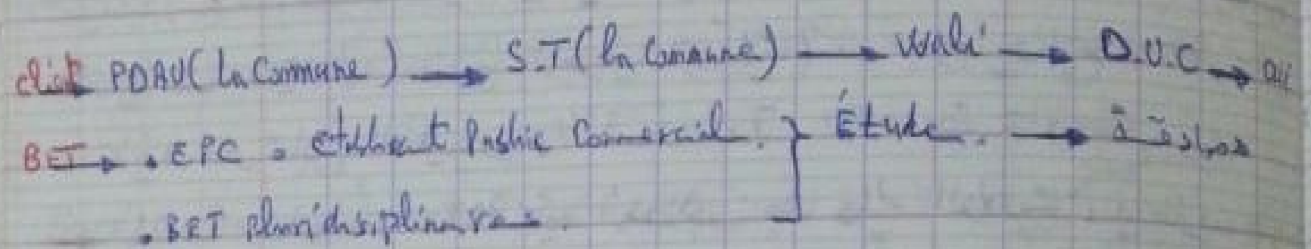 PDAU (la Commune) → S.T (la Commune) → Wali → D.U.C →
BET → . EPC . Public Commercial. } Étude. → مصادقة
. BET pluridisiplinaires.